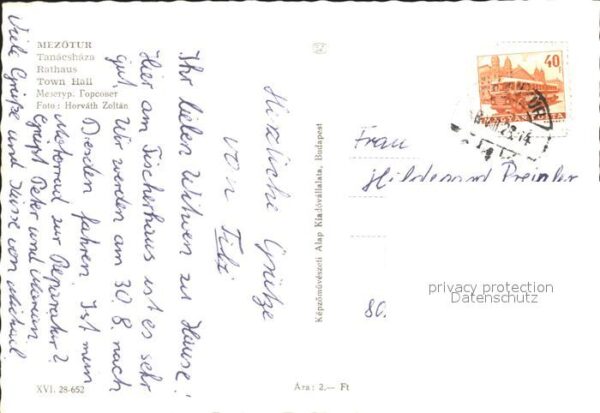 MEZŐTUR
Tanácsháza
Rathaus
Town Hall
Мезетур. Горсовет
Foto: Horváth Zoltán
Ihr lieben Witwen zu Hause!
Hier am Fischerhaus ist es sehr
gut. Wir werden am 30. 8. nach
Dresden fahren. Ist mein
Motorrad zur Reparatur?
Grüßt Peter und Marion
Viele Grüße und Küsse von Michael
Herzliche Grüße
von Tibi
XVI. 28-652
Ára: 2.— Ft
Képzőművészeti Alap Kiadóvállalata, Budapest
40f
MAGYAR POSTA
Frau
Hildegund Dreßler
80.
privacy protection
Datenschutz